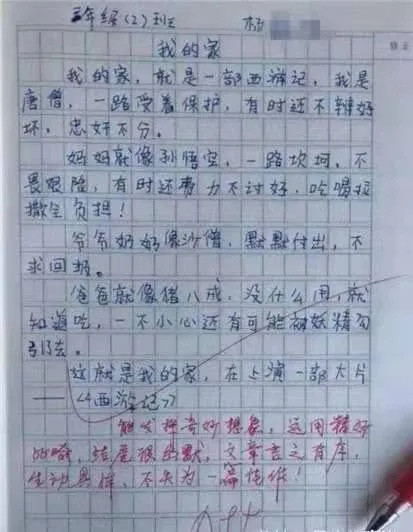 三年级(2)班 杨
我的家
我的家,就是一部西游记,我是
唐僧,一路受着保护,有时还不辨好
坏,忠奸不分。
妈妈就像孙悟空,一路坎坷,不
畏艰险,有时还费力不讨好,吃喝拉
撒全负担!
爷爷奶奶像沙僧,默默付出,不
求回报。
爸爸就像猪八戒,没什么用,就
知道吃,一不小心还有可能被妖精勾
引去。
这就是我的家,在上演一部大片
——《西游记》
能发挥奇妙想象,运用精妙
的比喻,结尾很幽默,文章言之有序,
生动具体,不失为一篇佳作!